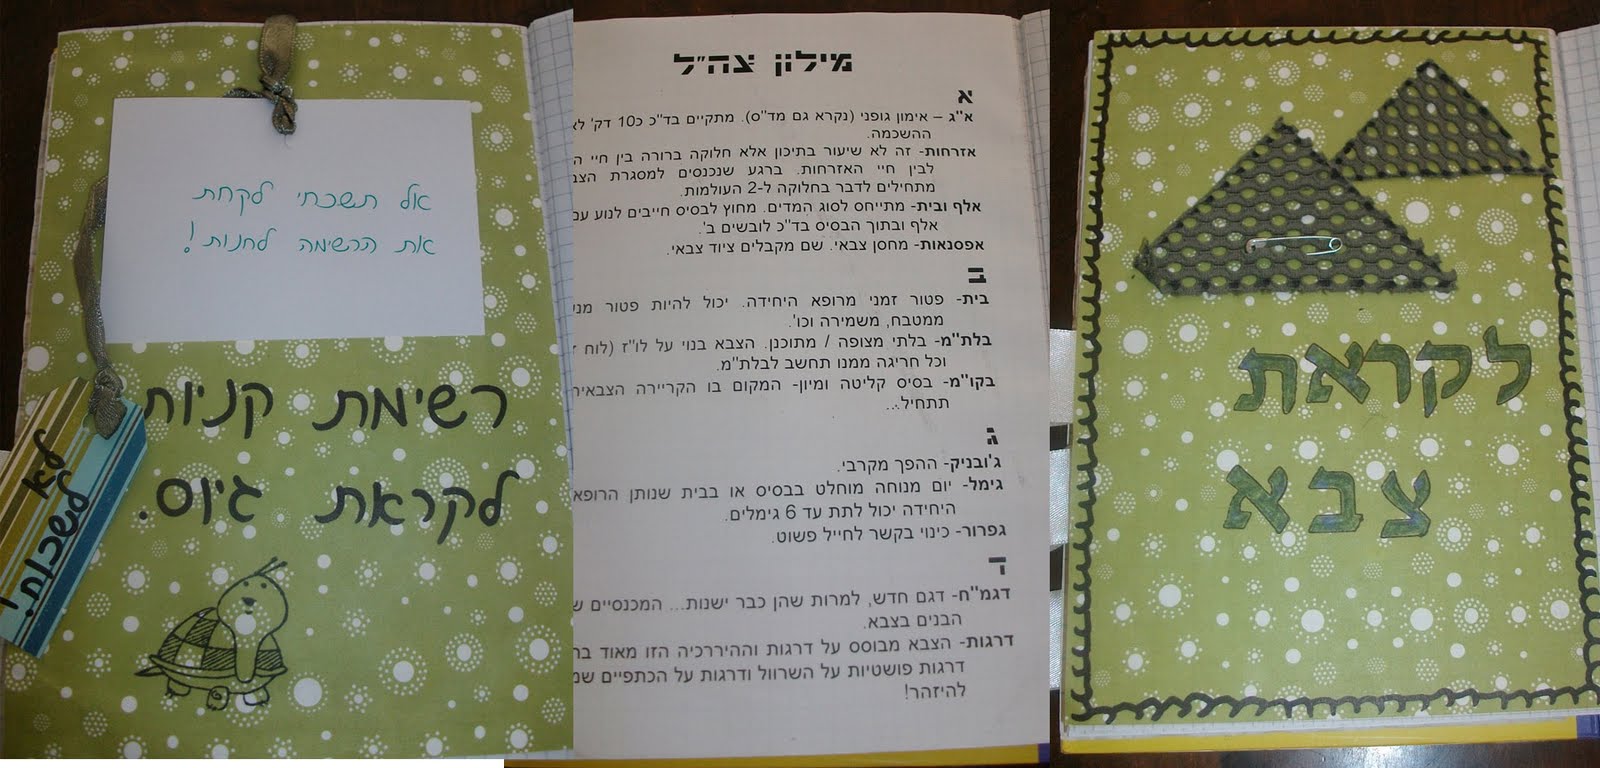 אל תשכחי לקחת
את הרשימה לחנות!
רשימת קניות
לקראת גיוס.
לא
לשכוח!
מילון צה"ל
א
א"ג – אימון גופני (נקרא גם מד"ס). מתקיים בד"כ כ10 דק'
ההשכמה.
אזרחות- זה לא שיעור בתיכון אלא חלוקה ברורה בין חיי
לבין חיי האזרחות. ברגע שנכנסים למסגרת
מתחילים לדבר בחלוקה ל-2 העולמות.
אלף ובית- מתייחס לסוג המדים. מחוץ לבסיס חייבים לנוע
אלף ובתוך הבסיס בד"כ לובשים ב'.
אפסנאות- מחסן צבאי. שם מקבלים ציוד צבאי.
ב
בית- פטור זמני מרופא היחידה. יכול להיות פטור
ממטבח, משמירה וכו'.
בלת"מ- בלתי מצופה / מתוכנן. הצבא בנוי על לו"ז (לוח
וכל חריגה ממנו תחשב לבלת"מ.
בקו"מ- בסיס קליטה ומיון- המקום בו הקריירה הצבאית
תתחיל...
ג
ג'ובניק- ההפך מקרבי.
גימל- יום מנוחה מוחלט בבסיס או בבית שנותן הרופא
היחידה יכול לתת עד 6 גימלים.
גפרור- כינוי בקשר לחייל פשוט.
ד
דגמ"ח- דגם חדש, למרות שהן כבר ישנות... המכנסיים
הבנים בצבא.
דרגות- הצבא מבוסס על דרגות וההיררכיה הזו מאוד
דרגות פושטיות על השרוול ודרגות על הכתפיים
להיזהר!
לקראת
צבא